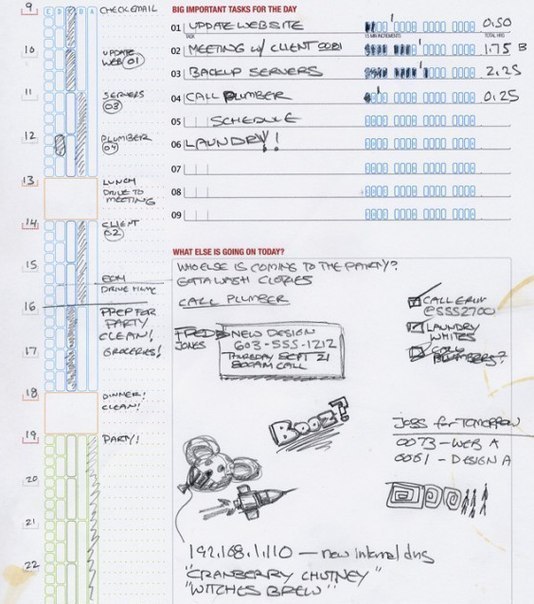 9
CHECK EMAIL
10
UPDATE
WEB 01
11
SERVERS
03
12
PLUMBER
04
13
LUNCH
DRIVE TO
MEETING
14
CLIENT
02
15
EOM
DRIVE HOME
16
PREP FOR
PARTY
CLEAN!
GROCERIES!
17
18
DINNER!
CLEAN!
19
PARTY!
20
21
22
BIG IMPORTANT TASKS FOR THE DAY
01 UPDATE WEBSITE 0.50
TASK 15 MIN INCREMENTS TOTAL HRS
02 MEETING W/ CLIENT 0021 1.75 B
03 BACKUP SERVERS 2.25
04 CALL PLUMBER 0.25
05 SCHEDULE
06 LAUNDRY!
07
08
09
WHAT ELSE IS GOING ON TODAY?
WHO ELSE IS COMING TO THE PARTY?
GOTTA WASH CLOTHES
CALL PLUMBER
FRED
JONES
NEW DESIGN
603-555-1212
THURSDAY SEPT 21
800AM CALL
CALL ERIN
@5552700
LAUNDRY
WHITES
CALL
PLUMBERS?
BOOZ?
JOBS for TOMORROW
0073 - WEB A
0061 - DESIGN A
192.168.1.110 — new internal dns
"CRANBERRY CHUTNEY"
"WITCHES BREW"